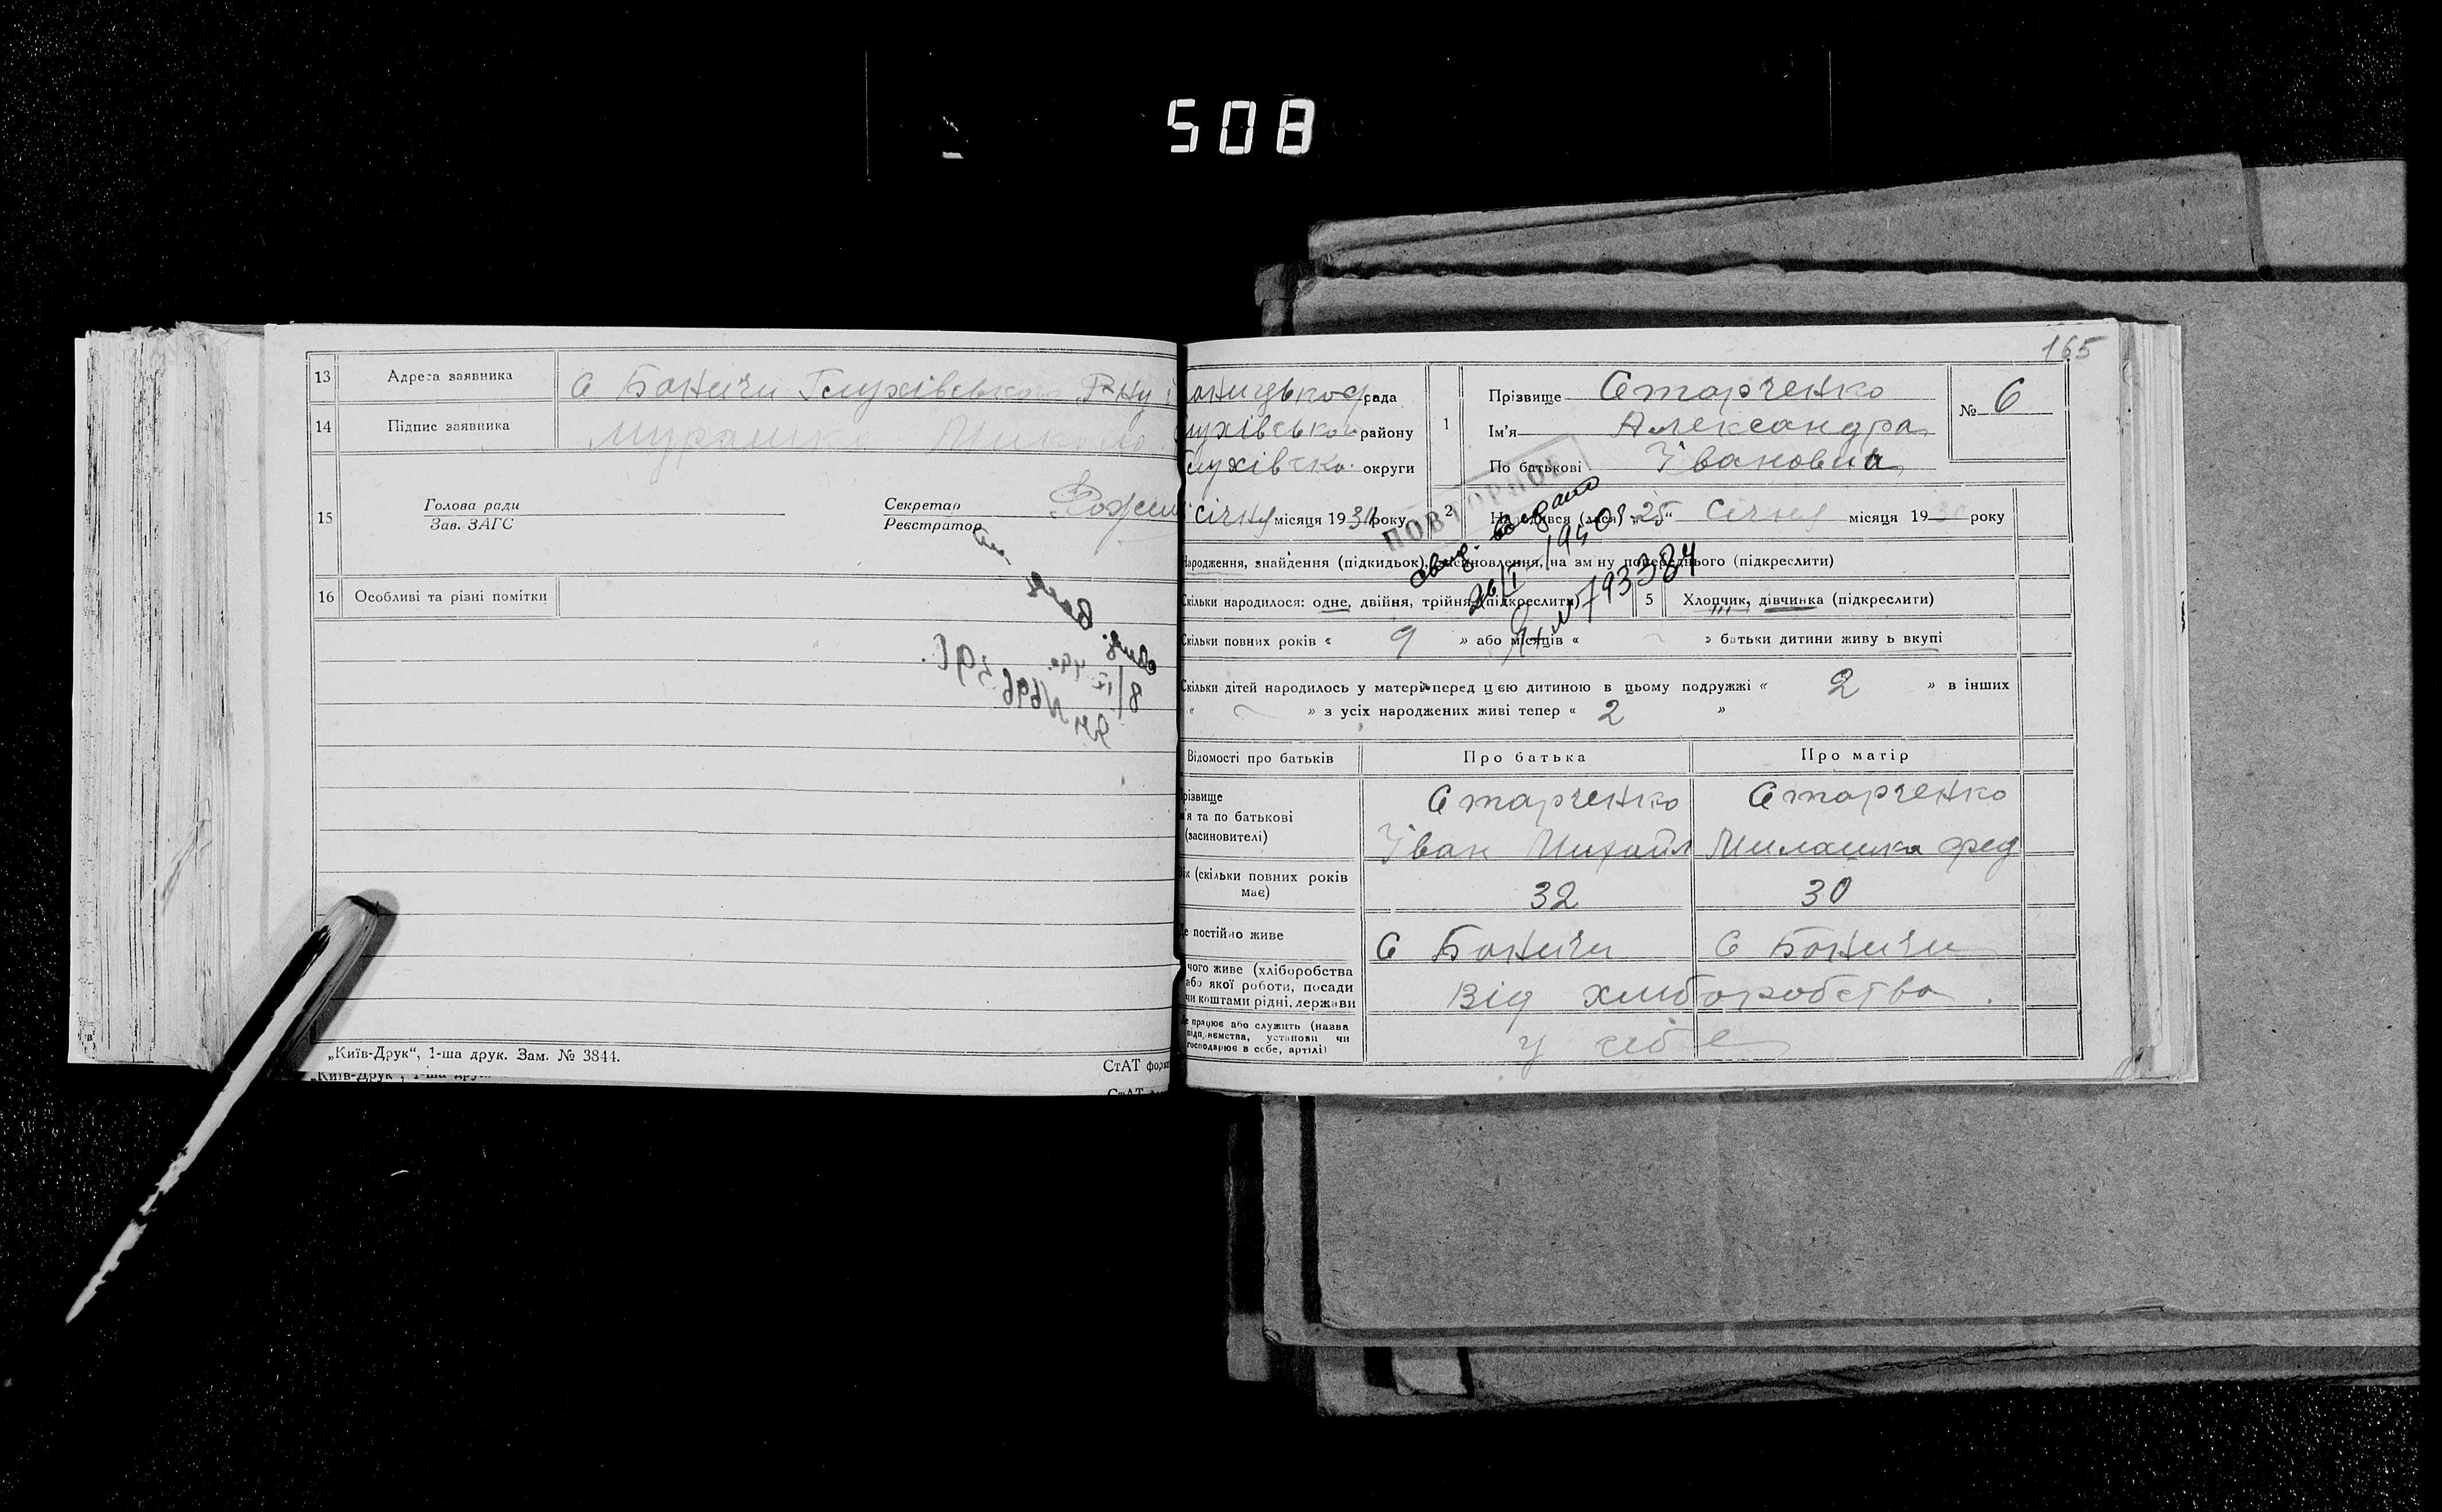 508
13 Адреса заявника С Баничи Глухівського Р-ну
14 Підпис заявника Мурашко Микола
15 Голова ради Секретар
Зав. ЗАГС Реєстратор
16 Особливі та різні помітки
„Київ-Друк“, 1-ша друк. Зам. № 3844.
СтАТ фор
„Київ-Друк“, 1-ша дру
165
аницької рада
лухівсько району
Глухівсько округи
січня місяця 193 року
1 Прізвище Старченко
№ 6
Ім'я Александра
По батькові Івановна
ПОВТОРНОЕ
2 Народився (лася) „25“ Січня місяця 1930 року
свид. выдано
26/I 1950
793384
Народження, знайдення (підкидьок), усиновлення, на зм ну попереднього (підкреслити)
Скільки народилося: одне, двійня, трійня (підкреслити) 5 Хлопчик, дівчинка (підкреслити)
Скільки повних років « 9 » або місяців « » батьки дитини живу ь вкупі
Скільки дітей народилось у матері перед цією дитиною в цьому подружжі « 2 » в інших
« » з усіх народжених живі тепер « 2 »
Відомості про батьків Про батька Про матір
різвище
'я та по батькові
(засиновителі)
Старченко Старченко
Іван Михайл Милашка Фед
Вік (скільки повних років має) 32 30
е постійно живе С Баничи С Баничи
чого живе (хліборобства
або якої роботи, посади
чи коштами рідні, держави
Від хліборобства
е працює або служить (назва
підп иємства, установи чи
господарює в себе, артілі)
у себе